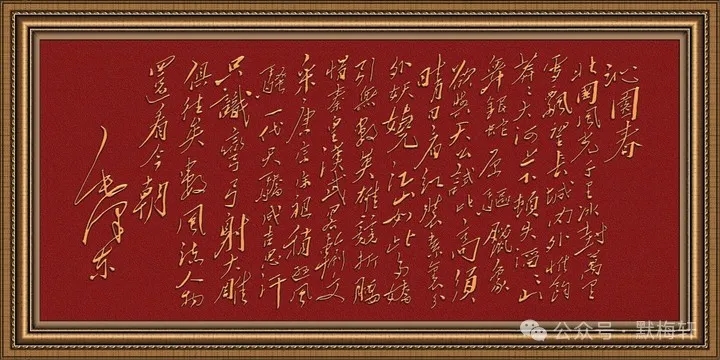 沁園春
北國風光千里冰封萬里
雪飄望長城内外惟餘
莽々大河上下頓失滔々山
舞銀蛇原驅臘象
欲與天公試比高須
晴日看红裝素裹分
外妖嬈江山如此多嬌
引無數英雄競折腰
惜秦皇漢武略輸文
采唐宗宋祖稍遜風
騷一代天驕成吉思汗
只識彎弓射大雕
俱往矣數風流人物
還看今朝
毛澤東
公众号·默梅轩